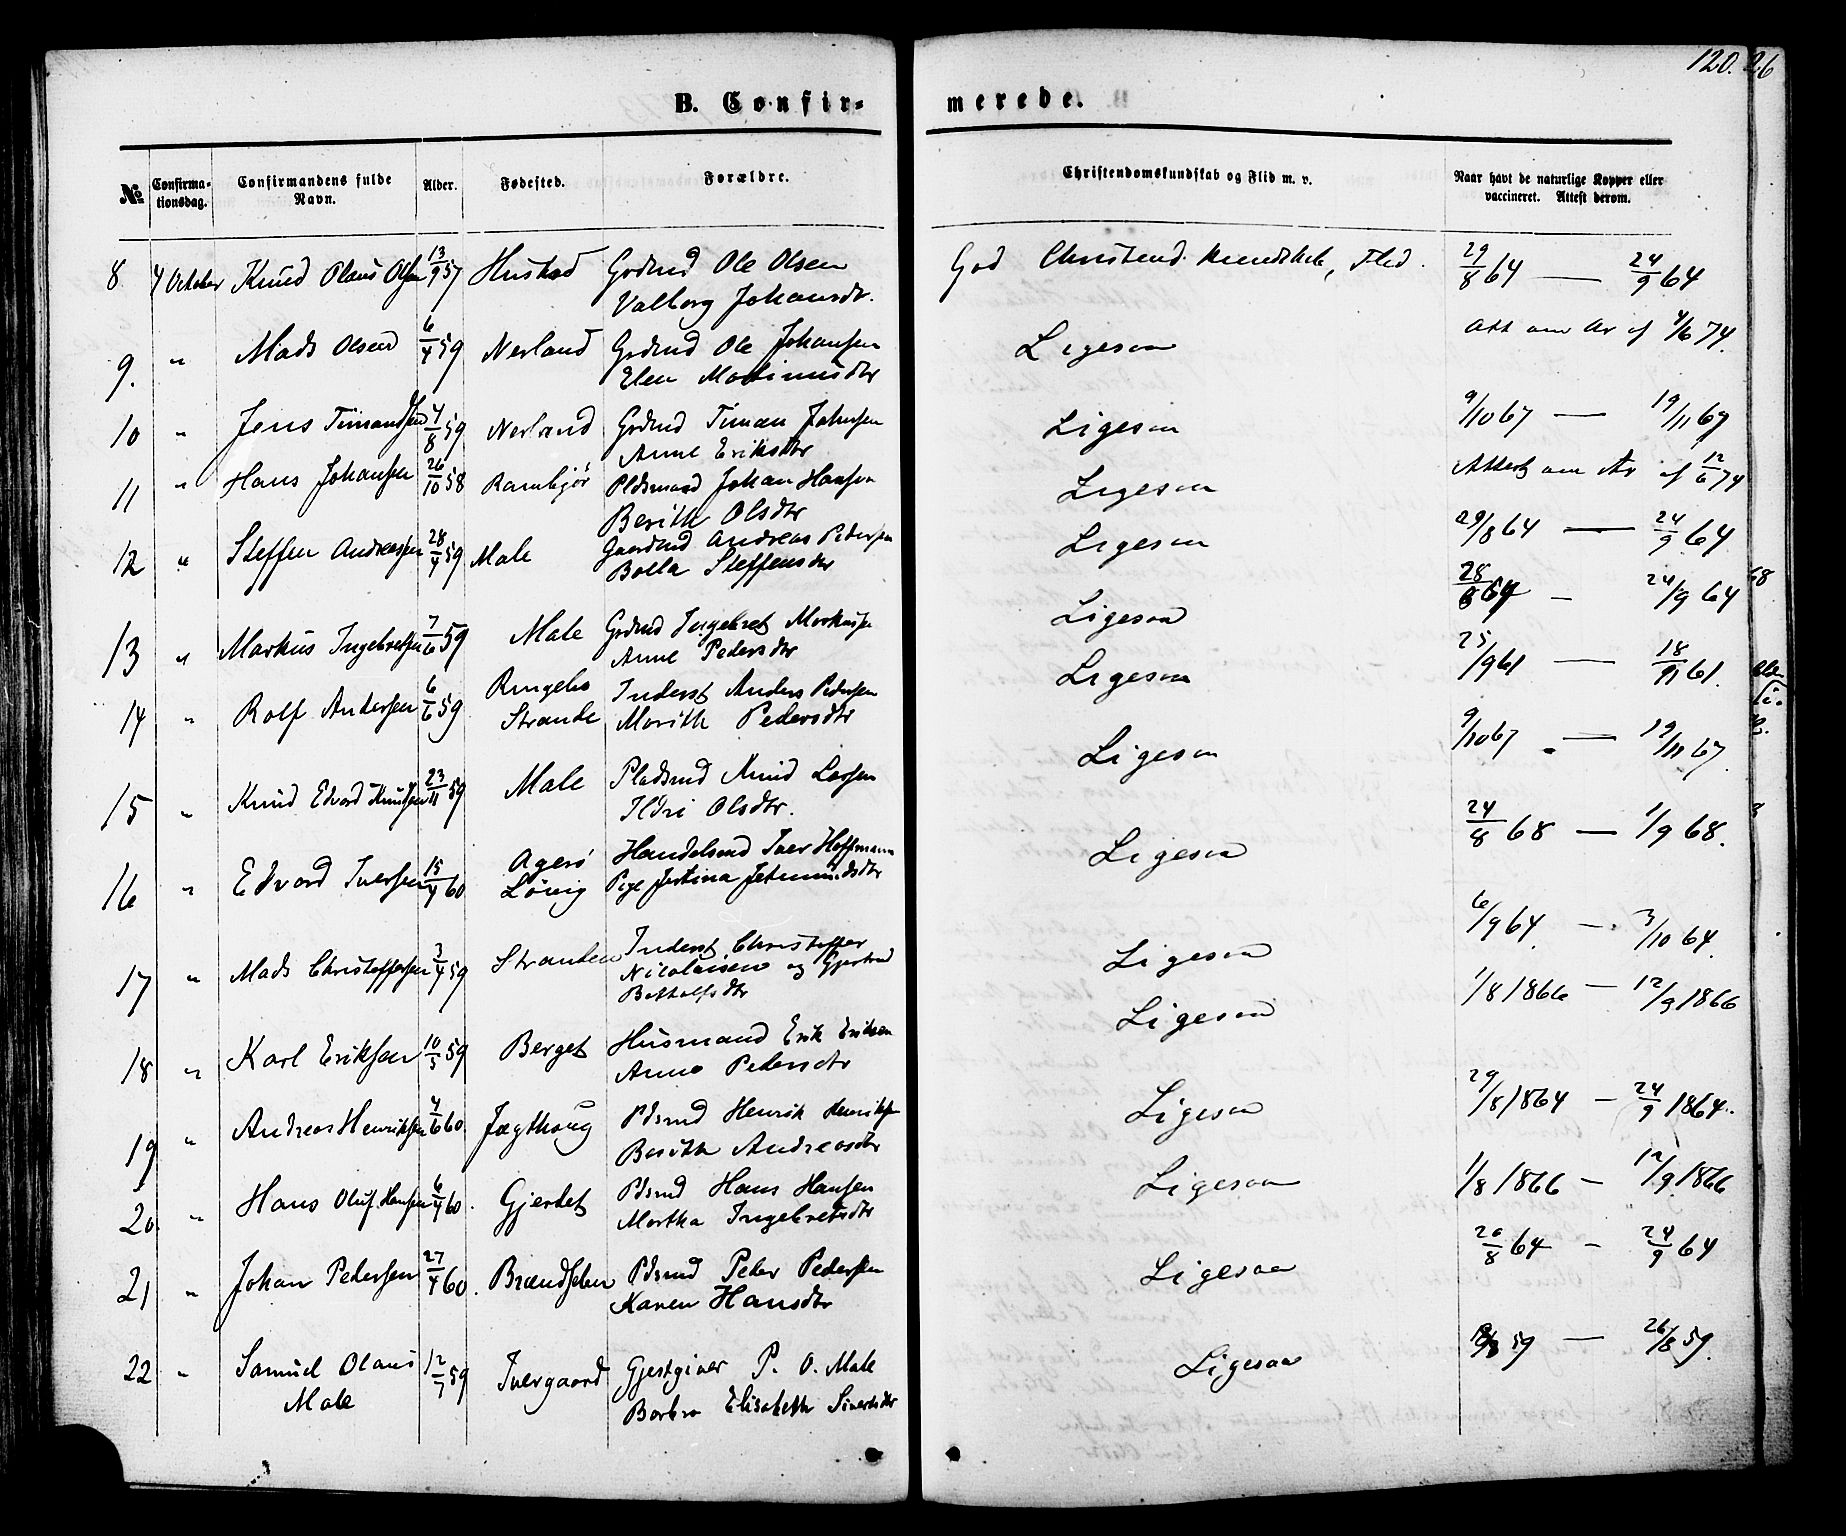 120. 26
B. Confir-
merede.
No
Confirma-
tionsdag.
Confirmandens fulde
Navn.
Alder.
Fødested.
Forældre.
Christendomskundskab og Flid m. v.
Naar havt de naturlige Kopper eller
vaccineret. Attest derom.
8 4 October Knud Olaus Olsen 13/9 57 Hustad Grdmd Ole Olsen
Valborg Johansdtr.
God Christend. kundskab, Flid. 29/8 64 — 24/9 64
9. " Mads Olsen 6/4 59 Nerland Grdmd Ole Johansen
Elen Martinusdtr
Ligesaa Att om Ar af 4/6 74.
10 " Jens Timandsen 4/8 59 Nerland Grdmd Timan Johnsen
Anne Eriksdtr
Ligesaa 9/10 67 — 19/11 67
11 " Hans Johansen 26/10 58 Rambjør Pldsmand Johan Hansen
Berith Olsdtr
Ligesaa Attest om Ar af 12/6 74
12 " Steffen Andreassen 28/4 59 Male Gaardmd Andreas Pedersen
Bolla Steffensdtr
Ligesaa 29/8 64 — 24/9 64
13 " Markus Ingebretsen 7/6 59 Male Grdmd Ingebret Markusen
Anne Pedersdtr
Ligesaa 28/8 64 – 24/9 64
14 " Rolf Andersen 6/6 59 Ringeho
Strande
Inderst Anders Pedersen
Marith Pedersdtr
Ligesaa 25/9 61 — 18/11 61.
15 " Knud Edvard Knudsen 23/11 59 Male Pladsmd Knud Larsen
Ildri Olsdtr.
Ligesaa 9/10 67 — 19/11 67.
16 " Edvard Iversen 15/4 60 Agerø
Løvig
Handelsmd Iver Hoffmann
Pige Jertina Jetmundsdtr
Ligesaa 24/8 68 — 1/9 68.
17 " Mads Christoffersen 3/4 59 Stranden Inderst Christoffer
Nicolaisen og Gjertrud
Botholfsdtr
Ligesaa 6/9 64 — 3/10 64.
18 " Karl Eriksen 10/5 59 Berget Husmand Erik Eriksen
Anne Pedersdtr
Ligesaa 1/8 1866 — 12/9 1866
19 " Andreas Henriksen 4/6 60 Jægthaug Pdsmd Henrik Henriksen
Berith Andreasdtr
Ligesaa 29/8 1864 – 24/9 1864.
20 " Hans Oluf Hansen 6/4 60. Gjerdet Pdsmd Hans Hansen
Martha Ingebretsdtr
Ligesaa 1/8 1866 – 12/9 1866
21 " Johan Pedersen 27/4 60. Brændselen Pdsmd Peder Pedersen
Karen Hansdtr
Ligesaa 20/8 64 – 24/9 64
22 " Samuel Olaus
Male
12/7 59 Ivergaard Gjestgiver P. O. Male
Barbro Elisabeth Sivertsdtr
Ligesaa 59 — 26/8 59.